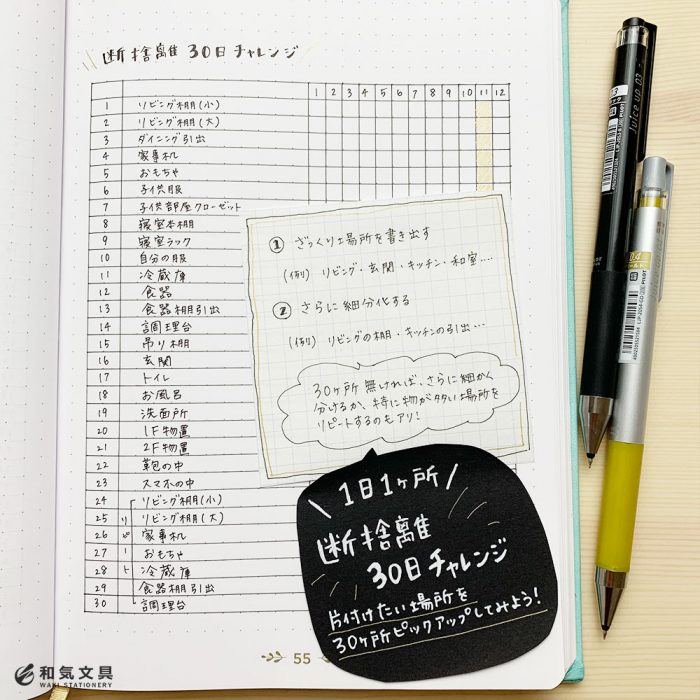 断捨離 30日チャレンジ
1 2 3 4 5 6 7 8 9 10 11 12
1 リビング棚(小)
2 リビング棚(大)
3 ダイニング引出
4 家事机
5 おもちゃ
6 子供服
7 子供部屋クローゼット
8 寝室本棚
9 寝室ラック
10 自分の服
11 冷蔵庫
12 食器
13 食器棚引出
14 調理台
15 吊り棚
16 玄関
17 トイレ
18 お風呂
19 洗面所
20 1F物置
21 2F物置
22 鞄の中
23 スマホの中
24 リビング棚(小)
25 リビング棚(大)
26 家事机
27 おもちゃ
28 冷蔵庫
29 食器棚引出
30 調理台
リピート
① ざっくり場所を書き出す
(例) リビング・玄関・キッチン・和室....
② さらに細分化する
(例) リビングの棚・キッチンの引出...
30ヶ所無ければ、さらに細かく
分けるか、特に物が多い場所を
リピートするのもアリ!
\ 1日1ヶ所 /
断捨離
30日チャレンジ
片付けたい場所を
30ヶ所ピックアップしてみよう!
55
和気文具
WAKI STATIONERY
Juice up 03
0.4
PILOT